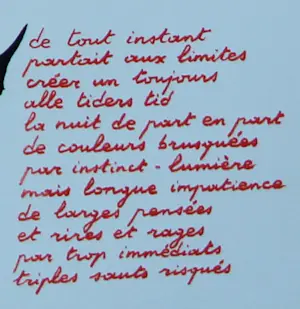 de tout instant
partait aux limites
créer un toujours
alle tiders tid
la nuit de part en part
de couleurs brusquées
par instinct - lumière
mais longue impatience
de larges pensées
et rires et rages
par trop immédiats
triples sauts risqués